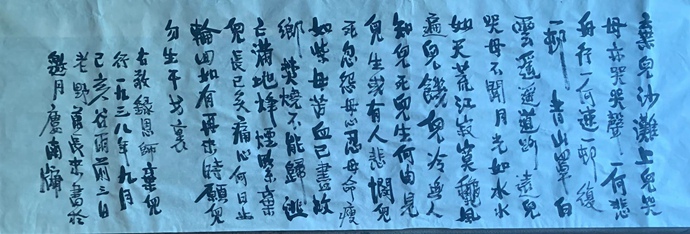 棄兒沙灘上兒哭
母亦哭哭聲一何悲
舟行一何速一邨復
一邨青山罩白
雲遥遥道路遠兒
哭母不聞月光如水水
如天荒江寂寞飄風
兒饑兒冷無人
知兒死兒生何由見
兒生或有人悲憫兒
死忽怨母心忍母命瘦
如柴母苦血已盡故
鄉焚燒不能歸逃
亡滿地烽煙緊棄
兒長已矣痛心何日止
輪回如有再來時願兒
勿生干戈裏
右敬錄恩師棄兒
行一九三八年九月
己亥谷雨前三日
老野黄長來書於
邀月廬南牖